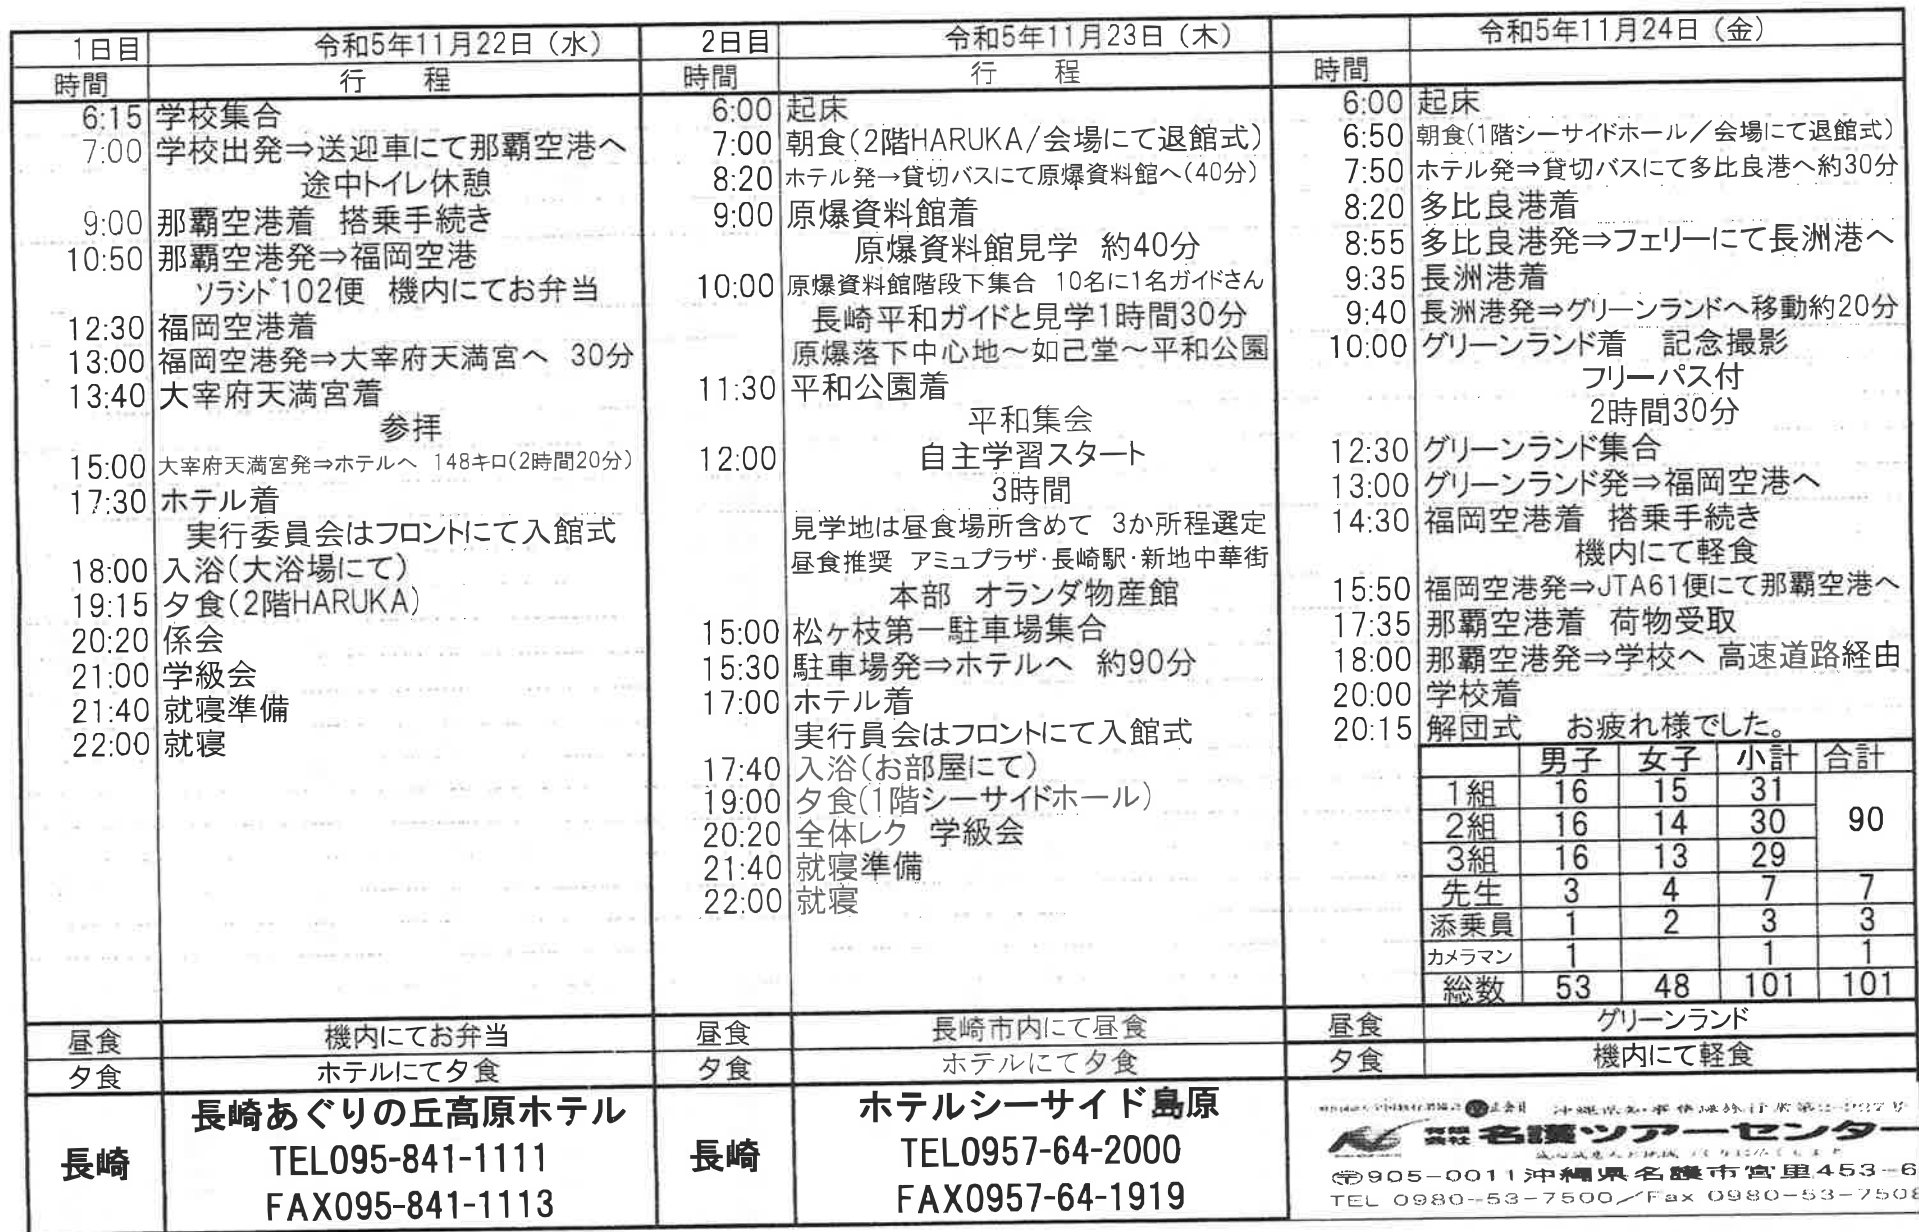 1日目 令和5年11月22日（水）
時間 行　程
6:15 学校集合
7:00 学校出発⇒送迎車にて那覇空港へ
途中トイレ休憩
9:00 那覇空港着　搭乗手続き
10:50 那覇空港発⇒福岡空港
ソラシド102便　機内にてお弁当
12:30 福岡空港着
13:00 福岡空港発⇒大宰府天満宮へ　30分
13:40 大宰府天満宮着
参拝
15:00 大宰府天満宮発⇒ホテルへ　148キロ(2時間20分)
17:30 ホテル着
実行委員会はフロントにて入館式
18:00 入浴(大浴場にて)
19:15 夕食(2階HARUKA)
20:20 係会
21:00 学級会
21:40 就寝準備
22:00 就寝
昼食 機内にてお弁当
夕食 ホテルにて夕食
長崎
長崎あぐりの丘高原ホテル
TEL095-841-1111
FAX095-841-1113
2日目 令和5年11月23日（木）
時間 行　程
6:00 起床
7:00 朝食(2階HARUKA/会場にて退館式)
8:20 ホテル発→貸切バスにて原爆資料館へ(40分)
9:00 原爆資料館着
原爆資料館見学　約40分
10:00 原爆資料館階段下集合　10名に1名ガイドさん
長崎平和ガイドと見学1時間30分
原爆落下中心地～如己堂～平和公園
11:30 平和公園着
平和集会
12:00 自主学習スタート
3時間
見学地は昼食場所含めて　3か所程選定
昼食推奨　アミュプラザ・長崎駅・新地中華街
本部　オランダ物産館
15:00 松ヶ枝第一駐車場集合
15:30 駐車場発⇒ホテルへ　約90分
17:00 ホテル着
実行員会はフロントにて入館式
17:40 入浴(お部屋にて)
19:00 夕食(1階シーサイドホール)
20:20 全体レク　学級会
21:40 就寝準備
22:00 就寝
昼食 長崎市内にて昼食
夕食 ホテルにて夕食
長崎
ホテルシーサイド島原
TEL0957-64-2000
FAX0957-64-1919
令和5年11月24日（金）
時間
6:00 起床
6:50 朝食(1階シーサイドホール／会場にて退館式)
7:50 ホテル発⇒貸切バスにて多比良港へ約30分
8:20 多比良港着
8:55 多比良港発⇒フェリーにて長洲港へ
9:35 長洲港着
9:40 長洲港発⇒グリーンランドへ移動約20分
10:00 グリーンランド着　記念撮影
フリーパス付
2時間30分
12:30 グリーンランド集合
13:00 グリーンランド発⇒福岡空港へ
14:30 福岡空港着　搭乗手続き
機内にて軽食
15:50 福岡空港発⇒JTA61便にて那覇空港へ
17:35 那覇空港着　荷物受取
18:00 那覇空港発⇒学校へ 高速道路経由
20:00 学校着
20:15 解団式　お疲れ様でした。
男子 女子 小計 合計
1組 16 15 31
2組 16 14 30 90
3組 16 13 29
先生 3 4 7 7
添乗員 1 2 3 3
カメラマン 1 1 1
総数 53 48 101 101
昼食 グリーンランド
夕食 機内にて軽食
有限会社 名護ツアーセンター
〒905-0011沖縄県名護市宮里453-6
TEL 0980-53-7500／Fax 0980-53-7508